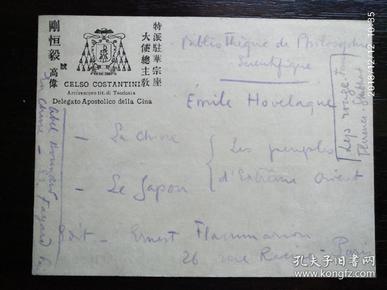 特派駐華宗座
大使總主教
剛恒毅
號高偉
CELSO COSTANTINI
Arcivescovo tit. di Teodosia
Delegato Apostolico della Cina
Bibliothèque de Philosophie
Scientifique
Émile Hovelaque
- La Chine
- Le Japon
Les peuples
d'Extrême Orient
Edit - Ernest Flammarion
26 rue Racine - Paris
Abel Bonnard
En Chine - Ed. Fayard
2018/12/12
孔夫子旧书网